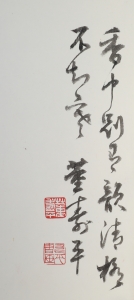 香中别有韵清极
不知寒 董寿平